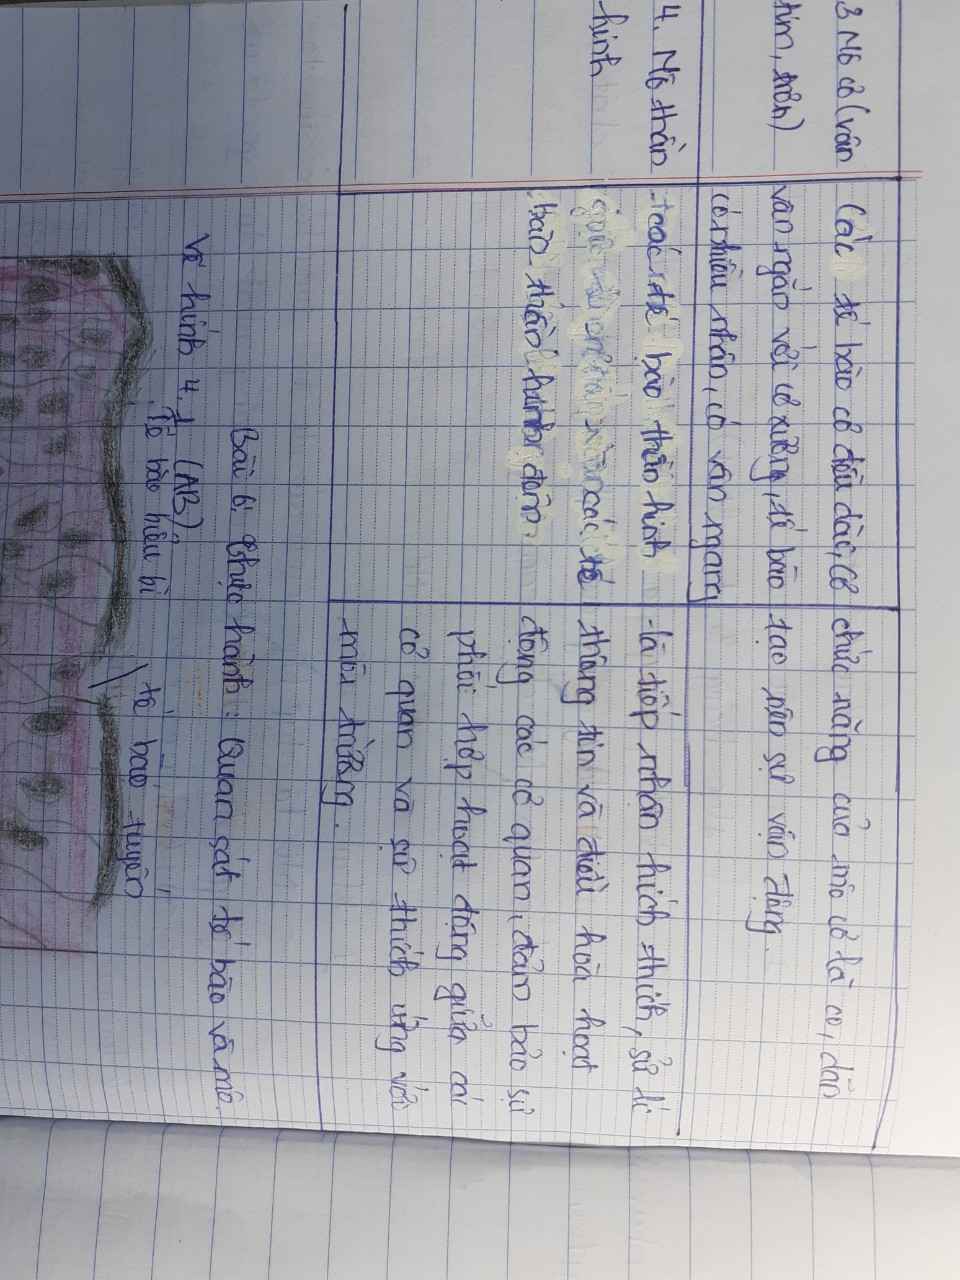 3 Mô cơ (vân
tim, trơn)
Các tế bào cơ đều dài, cơ
vân ngắn với cơ xương, tế bào
có nhiều nhân, có vân ngang
chức năng của mô cơ là co, dãn
tạo nên sự vận động.
4. Mô thần
kinh
- các tế bào thần kinh
các tế
bào thần kinh đệm
- là tiếp nhận kích thích, sử lí
thông tin và điều hoà hoạt
động các cơ quan, đảm bảo sự
phối hợp hoạt động giữa các
cơ quan và sự thích ứng với
môi trường.
Bài 6: Thực hành: Quan sát tế bào và mô.
Vẽ hình 4.1 (AB)
Tế bào biểu bì
tế bào tuyến